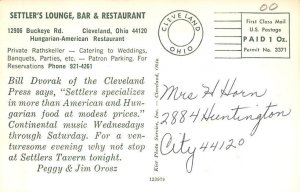 00
SETTLER'S LOUNGE, BAR & RESTAURANT
12906 Buckeye Rd. Cleveland, Ohio 44120
Hungarian-American Restaurant
Private Rathskeller — Catering to Weddings,
Banquets, Parties, etc. — Patron Parking. For
Reservations Phone 921-4261
CLEVELAND
OHIO
First Class Mail
U.S. Postage
PAID 1 Oz.
Permit No. 3371
Bill Dvorak of the Cleveland
Press says, "Settlers specializes
in more than American and Hun-
garian food at modest prices."
Continental music Wednesdays
through Saturday. For a ven-
turesome evening why not stop
at Settlers Tavern tonight.
Peggy & Jim Orosz
Mrs H Horn
2884 Huntington
City 44120